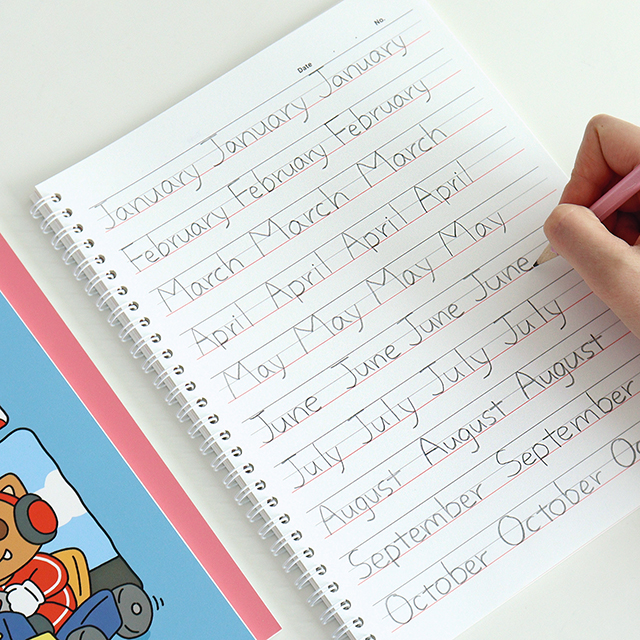 Date No.
January January January
February February February
March March March
April April April April
May May May May
June June June June
July July July July
August August August
September September
October October